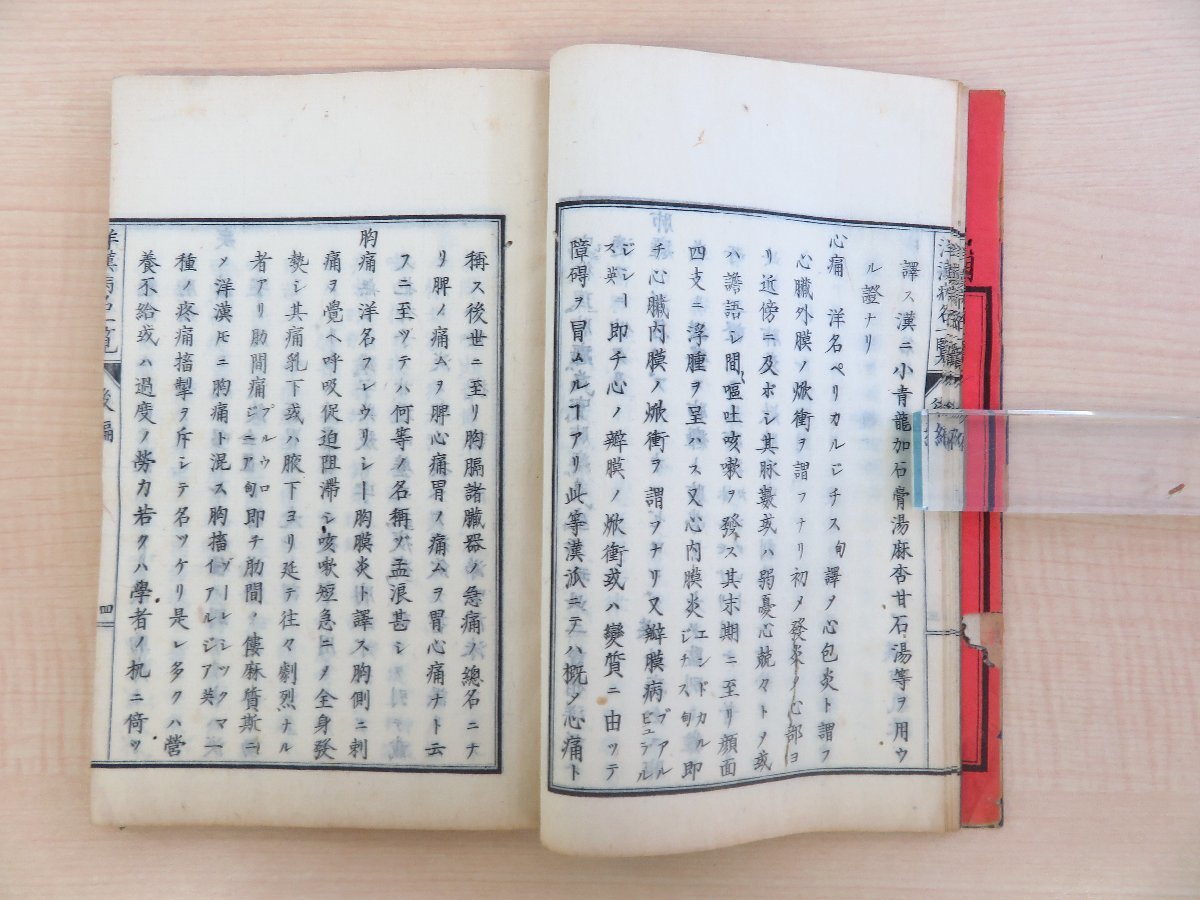 譯ス漢ニ小青龍加石膏湯麻杏甘石湯等ヲ用ウ
ル證ナリ
心痛 洋名ペリカルジチス匈譯ヲ心包炎ト謂フ
心臓外膜ノ焮衝ヲ謂フナリ初メ發炎タル心部ヨ
リ近傍ニ及ボシ其脉數或ハ弱憂心兢々トヲ或
ハ譫語シ間嘔吐咳嗽ヲ發ス其末期ニ至リ顔面
四支ニ浮腫ヲ呈ハス又心内膜炎エンドカルジチス匈即
チ心臓内膜ノ焮衝ヲ謂フナリ又瓣膜病ブアルビュラル
ジシース英即チ心ノ瓣膜ノ焮衝或ハ變質ニ由ツテ
障碍ヲ冒ムルヿアリ此等漢派ニテハ概ヲ心痛ト
稱ス後世ニ至リ胸膈諸臓器ノ急痛ノ總名ニナ
リ脾ノ痛ムヲ脾心痛胃ノ痛ムヲ胃心痛ナト云
フニ至ツテハ何等ノ名稱ゾ孟浪甚シ
胸痛 洋名フレウリシー胸膜炎ト譯ス胸側ニ刺
痛ヲ覺ヘ呼吸促迫阻滞シ咳嗽短急ニヲ全身發
𤍠シ其痛乳下或ハ腋下ヨリ延テ往々劇烈ナル
者アリ肋間痛プルウロジニア匈即チ肋間ノ僂麻質斯ニ
ノ洋漢𪜈ニ胸痛ト混ス胸搐ヴーレシックマーイアルジア英一
種ノ疼痛搐掣ヲ斥シテ名ツケリ是レ多クハ營
養不給或ハ過度ノ勞力若クハ學者ノ机ニ倚ツ
洋漢病名一覧
後編
四